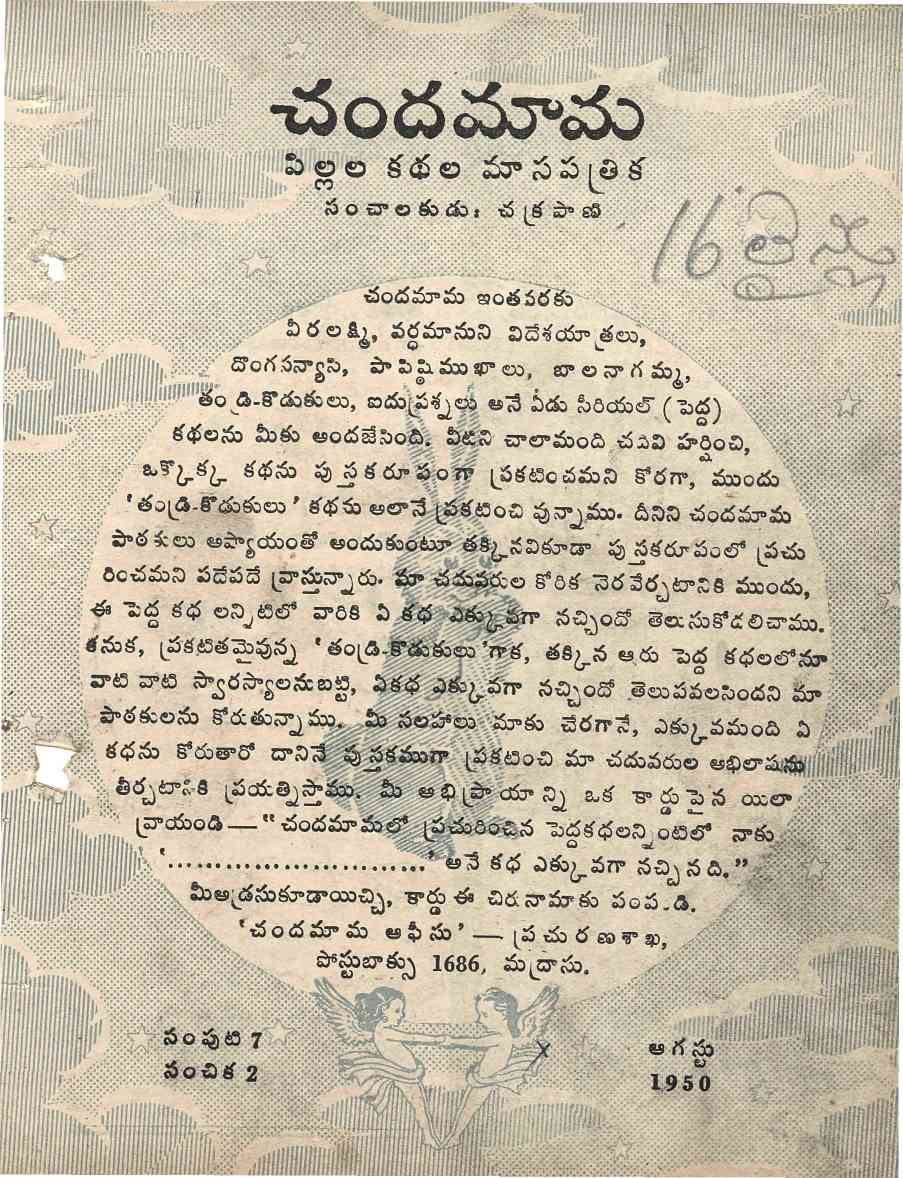 చందమామ
పిల్లల కథల మాసపత్రిక
సంచాలకుడు: చక్రపాణి
16 లైన్లు
చందమామ ఇంతవరకు
వీరలక్ష్మి, వర్ధమానుని విదేశయాత్రలు,
దొంగసన్యాసి, పాపిష్ఠిముఖాలు, బాలనాగమ్మ,
తండ్రి-కొడుకులు, ఐదుప్రశ్నలు అనే ఏడు సీరియల్ (పెద్ద)
కథలను మీకు అందజేసింది. వీటిని చాలామంది చదివి హర్షించి,
ఒక్కొక్క కథను పుస్తకరూపంగా ప్రకటించమని కోరగా, ముందు
‘తండ్రి-కొడుకులు’ కథను అలానే ప్రకటించి వున్నాము. దీనిని చందమామ
పాఠకులు అప్యాయంతో అందుకుంటూ తక్కినవికూడా పుస్తకరూపంలో ప్రచు
రించమని పదేపదే వ్రాస్తున్నారు. మా చదువరుల కోరిక నెరవేర్చటానికి ముందు,
ఈ పెద్ద కథ లన్నిటిలో వారికి ఏ కథ ఎక్కువగా నచ్చిందో తెలుసుకోదలిచాము.
కనుక, ప్రకటితమైవున్న ‘తండ్రి-కొడుకులు’గాక, తక్కిన ఆరు పెద్ద కథలలోనూ
వాటి వాటి స్వారస్యాలనుబట్టి, ఏకథ ఎక్కువగా నచ్చిందో తెలుపవలసిందని మా
పాఠకులను కోరుతున్నాము. మీ సలహాలు మాకు చేరగానే, ఎక్కువమంది ఏ
కథను కోరుతారో దానినే పుస్తకముగా ప్రకటించి మా చదువరుల అభిలాషను
తీర్చటానికి ప్రయత్నిస్తాము. మీ అభిప్రాయాన్ని ఒక కార్డుపైన యిలా
వ్రాయండి — “చందమామలో ప్రచురించిన పెద్దకథలన్నింటిలో నాకు
‘..........................’ అనే కథ ఎక్కువగా నచ్చినది.”
మీఅడ్రసుకూడాయిచ్చి, కార్డు ఈ చిరునామాకు పంపండి.
‘చందమామ ఆఫీసు’ — ప్రచురణశాఖ,
పోస్టుబాక్సు 1686, మద్రాసు.
సంపుటి 7
సంచిక 2
ఆగస్టు
1950